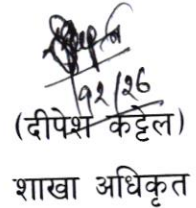 १२/२६
(दीपेश कट्टेल)
शाखा अधिकृत